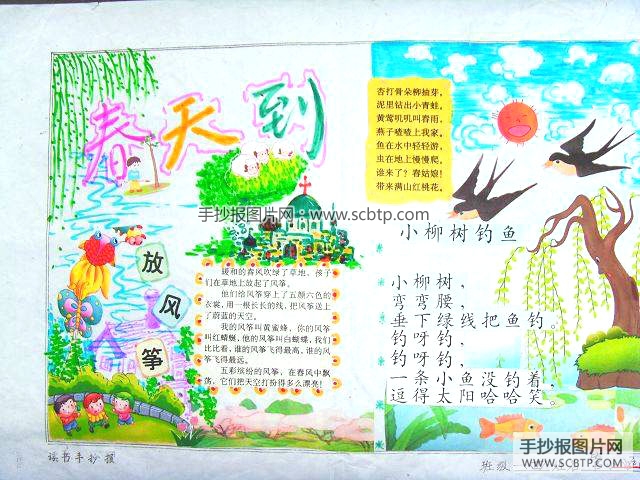 春天到
杏打骨朵柳抽芽，
泥里钻出小青蛙。
黄莺叽叽叫春雨，
燕子喳喳上我家。
鱼在水中轻轻游，
虫在地上慢慢爬。
谁来了？春姑娘！
带来满山红桃花。
手抄报图片网：www.scbtp.com
放风筝
暖和的春风吹绿了草地，孩子
们在草地上放起了风筝。
他们给风筝穿上了五颜六色的
衣裳，用一根长长的线，把风筝送上
了蔚蓝的天空。
我的风筝叫黄蜜蜂，你的风筝
叫红蜻蜓，他的风筝叫白蝴蝶，我们
比比看，谁的风筝飞得最高，谁的风
筝飞得最远。
五彩缤纷的风筝，在春风中飘
荡，它们把天空打扮得多么漂亮！
小柳树钓鱼
小柳树，
弯弯腰，
垂下绿线把鱼钓。
钓呀钓，
钓呀钓，
一条小鱼没钓着，
逗得太阳哈哈笑。
读书手抄报
班级
手抄报图片网
WWW.SCBTP.COM